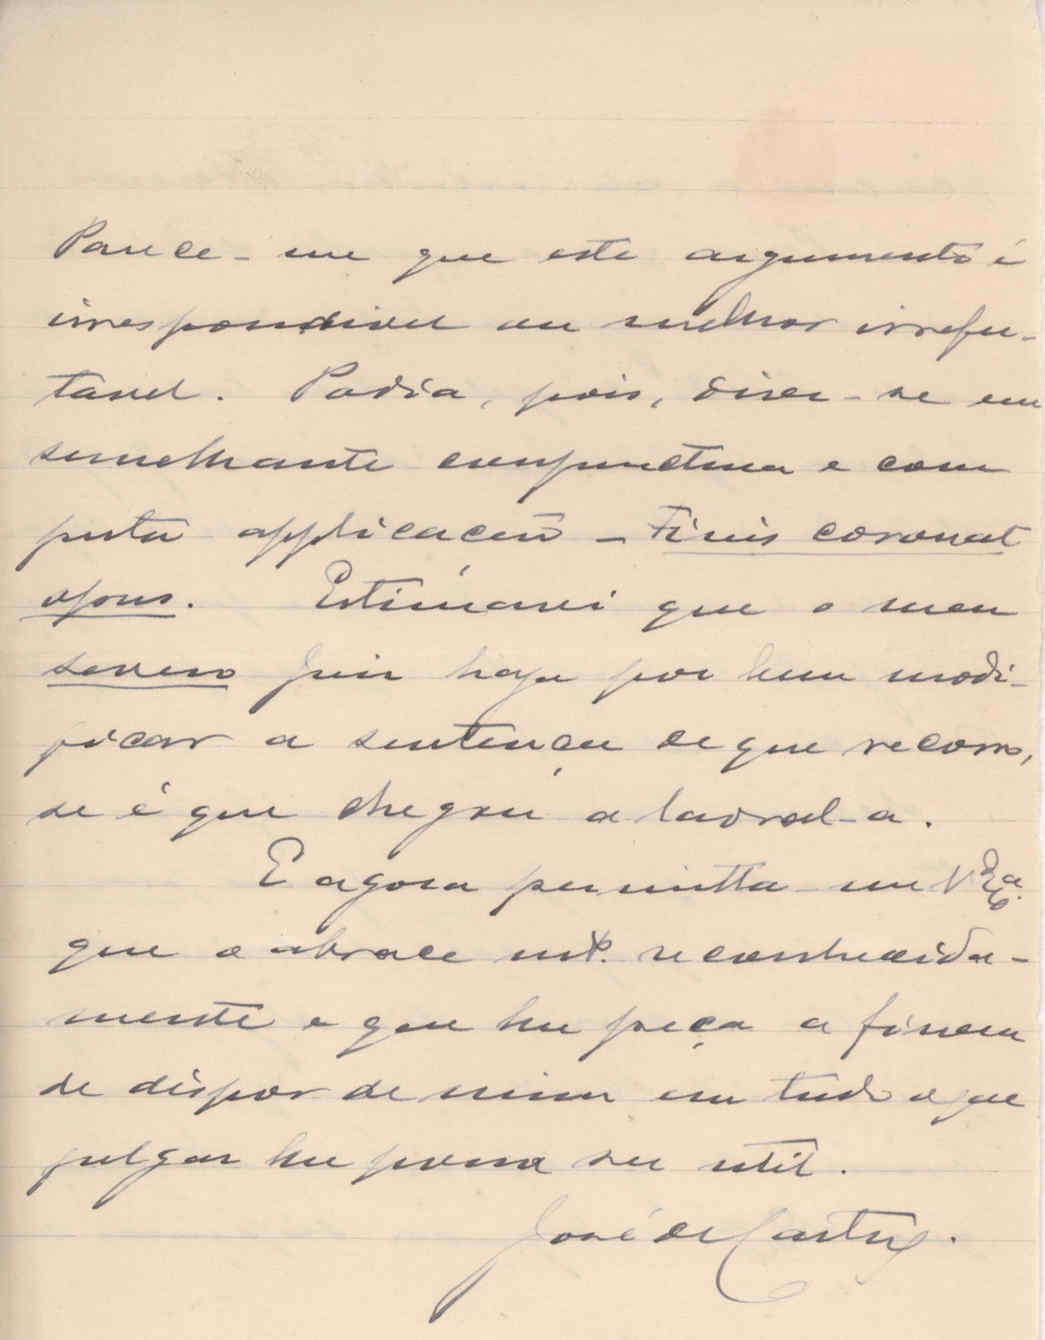 Parece-me que este argumento é
irrespondivel ou melhor irrefu-
tavel. Podia, pois, diser-se em
semelhante conjunctura e com
justa applicacão - Finis coronat
opus. Estimarei que o meu
severo Juiz haja por bem modi-
ficar a sentença de que recorro,
se é que chegou a lavral-a.
E agora permitta-me V. Exa.
que o abrace mto. reconhecida-
mente e que lhe peça a finesa
de dispor de mim em tudo o que
julgar lhe possa ser util.
José de Castro.